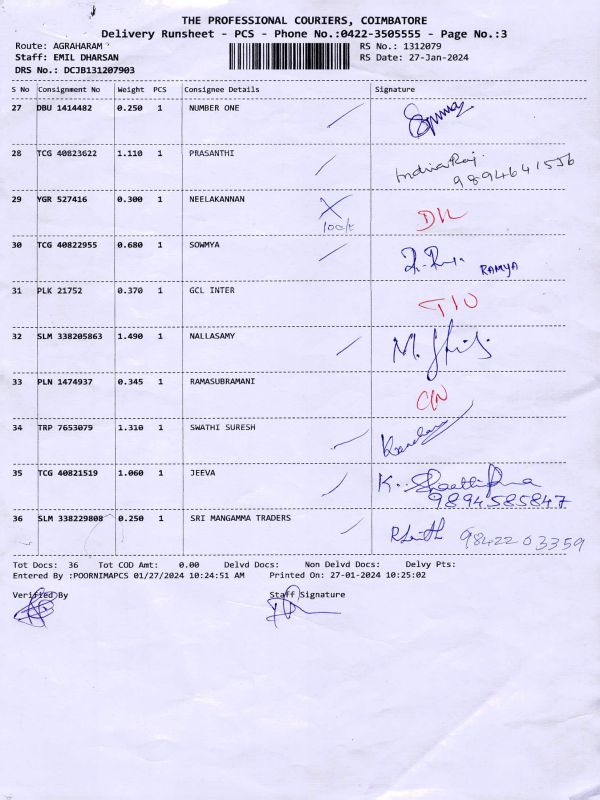 THE PROFESSIONAL COURIERS, COIMBATORE
Delivery Runsheet - PCS - Phone No.:0422-3505555 - Page No.:3
Route: AGRAHARAM RS No.: 1312079
Staff: EMIL DHARSAN RS Date: 27-Jan-2024
DRS No.: DCJB131207903
S No Consignment No Weight PCS Consignee Details Signature
27 DBU 1414482 0.250 1 NUMBER ONE
28 TCG 40823622 1.110 1 PRASANTHI
9894641556
29 YGR 527416 0.300 1 NEELAKANNAN
30 TCG 40822955 0.680 1 SOWMYA RAMYA
31 PLK 21752 0.370 1 GCL INTER
32 SLM 338205863 1.490 1 NALLASAMY
33 PLN 1474937 0.345 1 RAMASUBRAMANI
34 TRP 7653079 1.310 1 SWATHI SURESH
35 TCG 40821519 1.060 1 JEEVA
9894585847
36 SLM 338229808 0.250 1 SRI MANGAMMA TRADERS 9842203359
Tot Docs: 36 Tot COD Amt: 0.00 Delvd Docs: Non Delvd Docs: Delvy Pts:
Entered By :POORNIMAPCS 01/27/2024 10:24:51 AM Printed On: 27-01-2024 10:25:02
Verified By Staff Signature